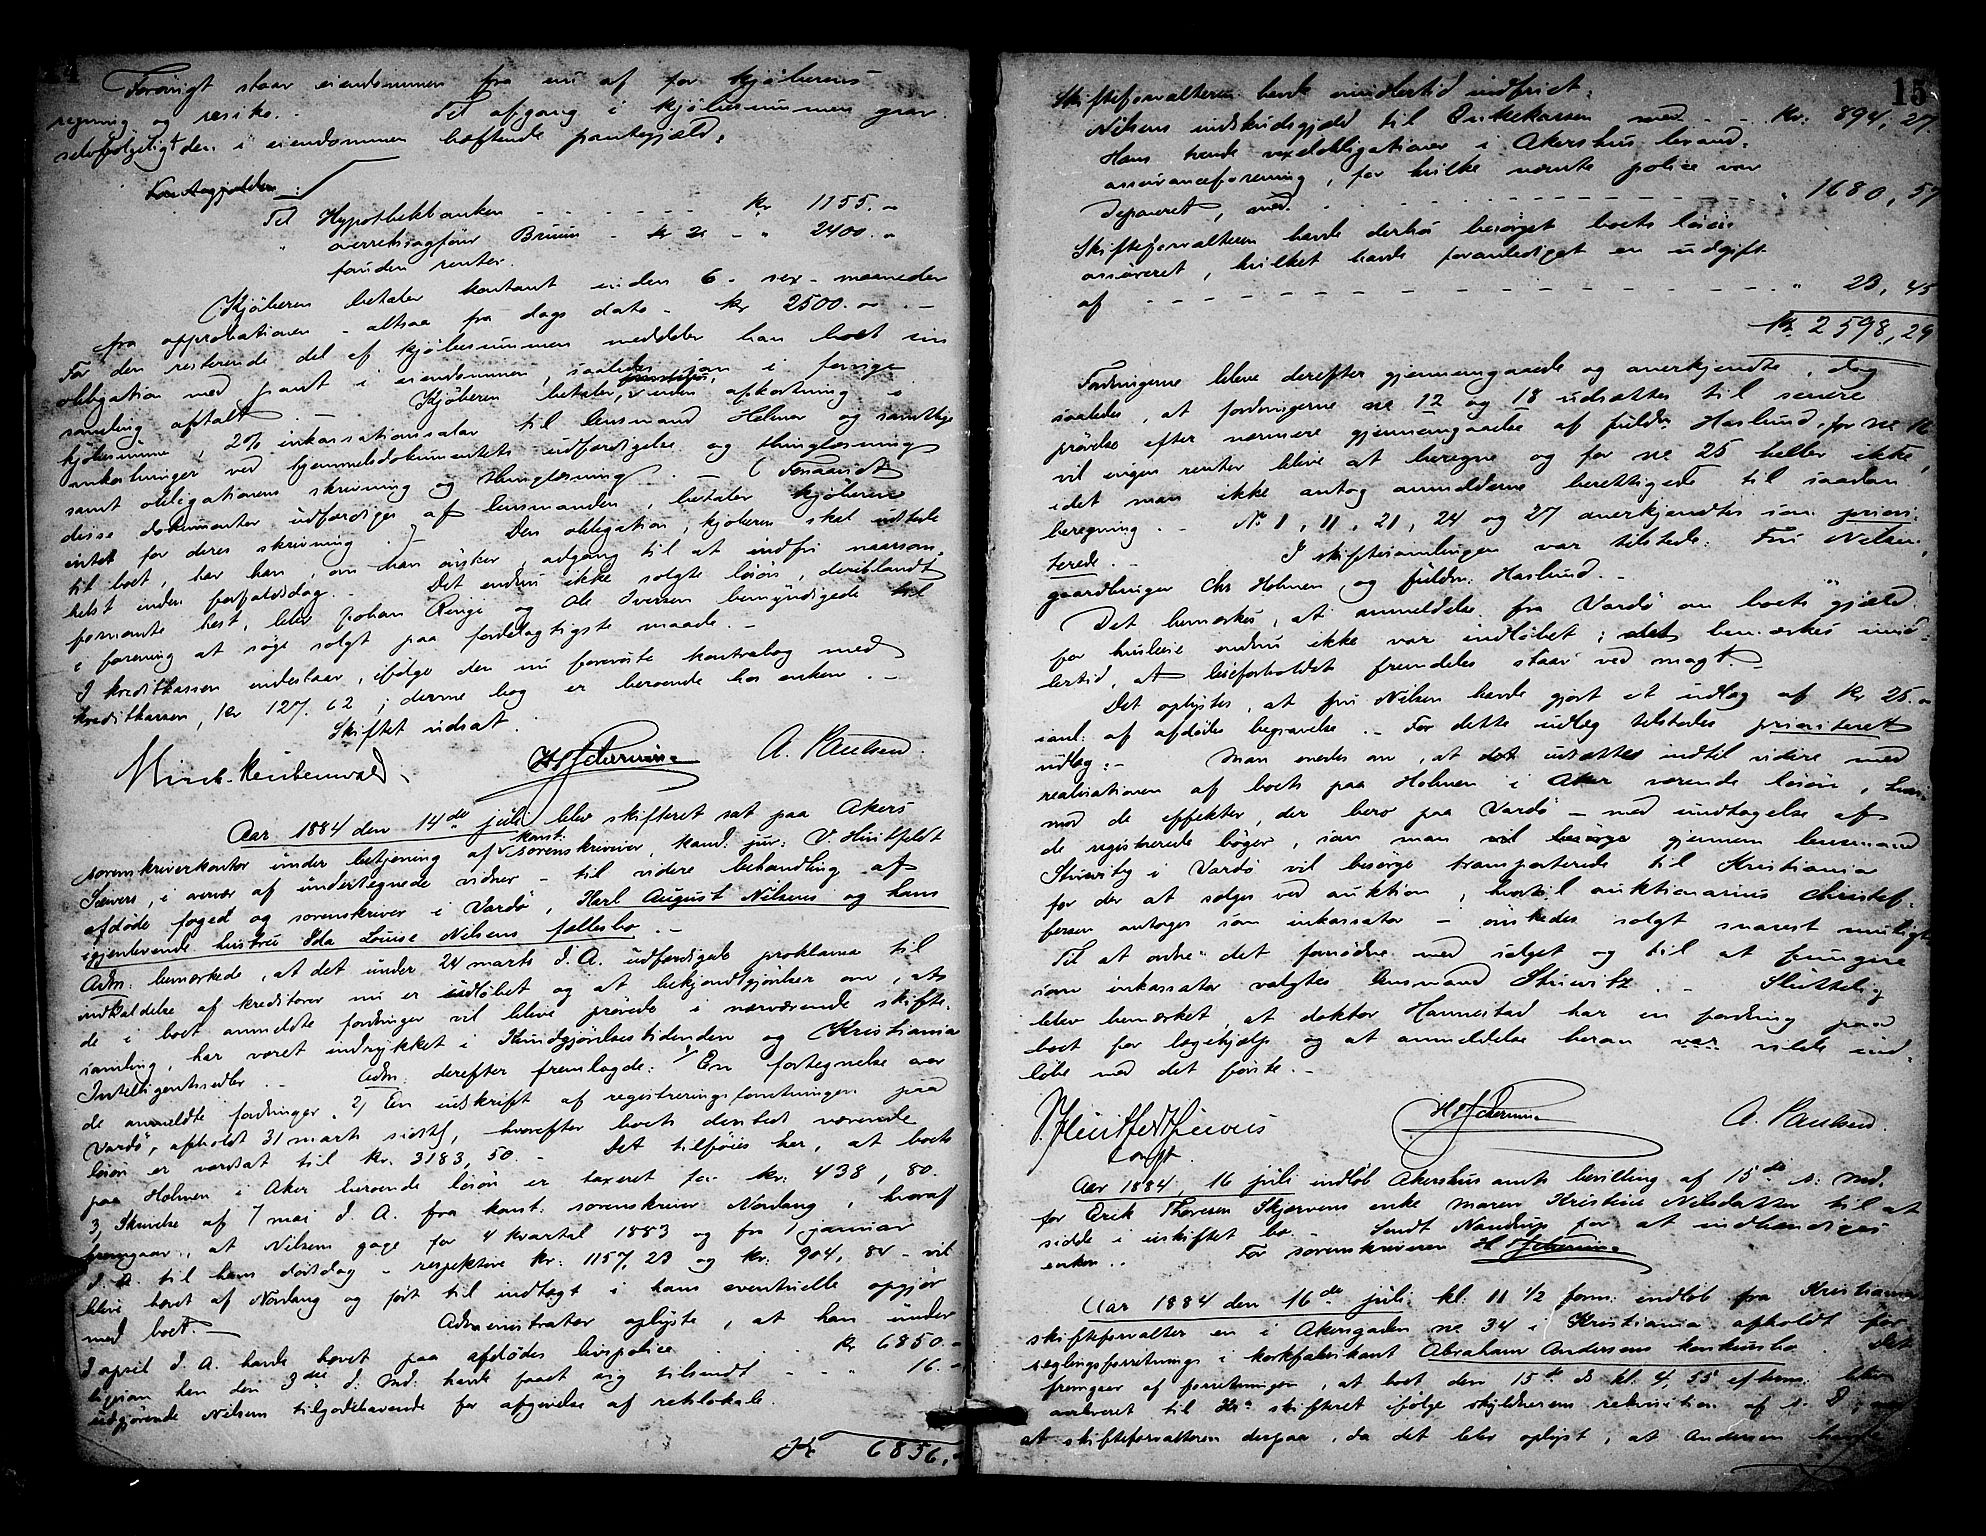 14
Forøvrigt staar eiendommen fra nu af for kjøberens
regning og resiko. Til afgang i kjøbesummen gaar
selvfølgelig den i eiendommen hæftende pantegjæld:
Pantegjælden:
Til Hypothekbanken - - - - - - kr 1155. "
" overretssagfører Bruun - kr " 2400. "
foruden renter.
Kjøberen betaler kontant inden 6 - sex - maaneder
fra approbationen - altsaa fra dags dato - kr 2500. " -
For den resterende del af kjøbesummen meddeler han boet sin
obligation med pant i eiendommen, saaledes som i forrige
samling aftalt. - Kjøberen betaler, uden afkortning i
kjøbesummen, 2% inkassationssalær til lensmand Holmer og samtlige
omkostninger ved hjemmelsdokumentets udfærdigelse og thinglæsning
samt obligationens skrivning og thinglæsning. - (Forsaavidt
disse dokumenter udfærdiges af lensmanden, betaler kjøberen
intet for deres skrivning.) - Den obligation, kjøberen skal udstede
til boet, har han, om han ønsker, adgang til at indfri naarsom-
helst inden forfaldsdag. - Det endnu ikke solgte løsøre, deriblandt
fornævnte hest, blev Johan Ringe og Ole Iversen bemyndigede til
i forening at søge solgt paa fordelagtigste maade. -
I kreditkassen indestaar, ifølge den nu foreviste kontrabog med
kreditkassen, kr 127.62; denne bog er beroende hos enken. -
Skiftet udsat.
A. Paulsen.
Aar 1884 den 14de juli blev skifteret sat paa Akers
sorenskriverkontor under betjening af konst. sorenskriver, kand. jur. V. Huitfeldt
Sievers, i overvær af undertegnede vidner - til videre behandling af
afdøde foged og sorenskriver i Vardø, Karl August Nilsens og hans
igjenlevende hustru Ida Louise Nilsens fællesbo. -
Adm. bemærkede, at det under 24 marts d. A. udfærdigede proklama til
indkaldelse af kreditorer nu er udløbet og at bekjendtgjørelser om, at
de i boet anmeldte fordringer vil blive prøvede i nærværende skifte-
samling, har været indrykket i Kundgjørelsestidenden og Kristiania
Intelligentssedler. - Adm. derefter fremlagde: 1) En fortegnelse over
de anmeldte fordringer. 2) En udskrift af registreringsforretningen paa
Vardø, afholdt 31 marts sidstl., hvorefter boets dersteds værende
løsøre er værdsat til kr. 3183,50. - Det tilføies her, at boets
paa Holmen i Aker beroende løsøre er taxeret for kr. 438,80.
3, Skrivelse af 7 mai d. A. fra konst. sorenskriver Nordang, hvoraf
fremgaar, at Nilsens gage for 4 kvartal 1883 og fra 1 januar
d. A. til hans dødsdag - respektive kr. 1157,23 og kr. 904,84 - vil
blive hævet af Nordang og ført til indtægt i hans eventuelle opgjør
med boet. - Administrator oplyste, at han under
3 april d. A. havde hævet paa afdødes livspolice kr 6850. -
ligesom han den 3die d. Md. havde faaet sig tilsendt - - " 16. -
udgjørende Nilsens tilgodehavende for afgivelse af retslokale.
Kr 6856. -
15
Skifteforvalteren havde imidlertid indfriet:
Nilsens indskudsgjæld til Enkekassen med - - kr. 894,27
Hans tvende vexelobligationer i Akershus brand-
assuranceforening, for hvilke nævnte police var
deponeret, med - - - - - - " 1680,57
Skifteforvalteren havde derhos besørget boets løsøre
assureret, hvilket havde foranlediget en udgift
af - - - - - - " 23,45
Kr 2598,29
Fordringerne bleve derefter gjennemgaaede og anerkjendte, dog
saaledes, at fordringerne no 12 og 18 udsættes til senere
prøvelse efter nærmere gjennemgaaelse af fuldm. Haslund. For no 16
vil ingen renter blive at beregne og for no 25 heller ikke,
idet man ikke antog anmelderne berettigede til saadan
beregning. - No 1, 11, 21, 24 og 27 anerkjendtes som priori-
terede. - I skiftesamlingen var tilstede: Fru Nilsen,
gaardbruger Chr Holmen og fuldm. Haslund. -
Det bemærkes, at anmeldelse fra Vardø om boets gjæld
for husleie endnu ikke var indløbet; det bemærkes imid-
lertid, at leieforholdet fremdeles staar ved magt. -
Det oplystes, at fru Nilsen havde gjort et udlæg af kr 25. "
ianl. af afdødes begravelse. - For dette udlæg tilstodes prioriteret
udlæg: - Man enedes om, at det udsættes indtil videre med
realisationen af boets paa Holmen i Aker værende løsøre,
mod de effekter, der bero paa Vardø - med undtagelse af
de registrerede bøger, som man vil besørge gjennem lensmand
Struwitz i Vardø vil besørge transporterede til Kristiania
for der at sælges ved auktion, hvortil auktionarius Christof-
fersen antoges som inkassator - ønskedes solgt snarest muligt
Til at ordne det fornødne med salget og til at fungere
som inkassator valgtes lensmand Struwitz. - Sluttelig
blev bemærket, at doktor Hannestad har en fordring paa
boet for lægehjælp og at anmeldelse herom var vilde ind-
løbe med det første. -
V. Huitfeldt Sievers
const.
A. Paulsen.
Aar 1884 16 juli indløb Akershus amts bevilling af 15de s. md.
for Erik Thoresen Skjervens enke Maren Kristine Nilsdatter til at
sidde i uskiftet bo. - Sendt Nandrup for at indhændiges
enken. . For sorenskriveren
Aar 1884 den 16de juli kl. 11 1/2 form. indløb fra Kristiania
skifteforvalter en i Akersgaden no 34 i Kristiania afholdt for-
seglingsforretning i korkfabrikant Abraham Andersens konkursbo. Det
fremgaar af forretningen, at boet den 15de ds kl. 4,55 efterm. blev
overleveret til Kra skifteret ifølge skyldnerens rekvisition af s. D,
at skifteforvalteren derpaa, da det blev oplyst, at Andersen havde